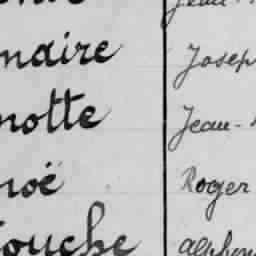 maire Josep
notte Jean-
noë Roger
ouche Alphon